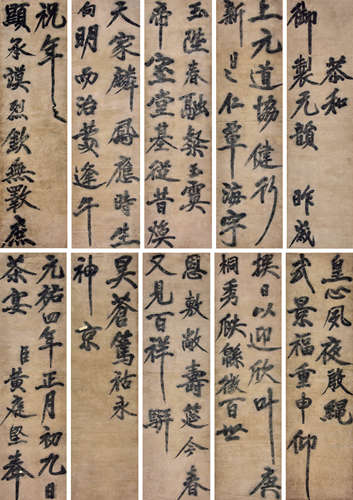 恭和
御製元韻 昨歲
上元道協健行
新〻仁覃海宇
玉陛春融粲玉
帝室堂基從昔煥
天家麟鳳應時生
向明而治茲逢午
祝年〻
顯承謨烈欽無斁庶
皇心夙夜啟繩
武景福重申仰
揆日以迎欣叶庚
桐秀瓞緜徵百世
恩敷敞壽筵今春
又見百祥駢
昊蒼篤祜永
神京
元祐四年正月初九日
茶宴 臣黃庭堅奉